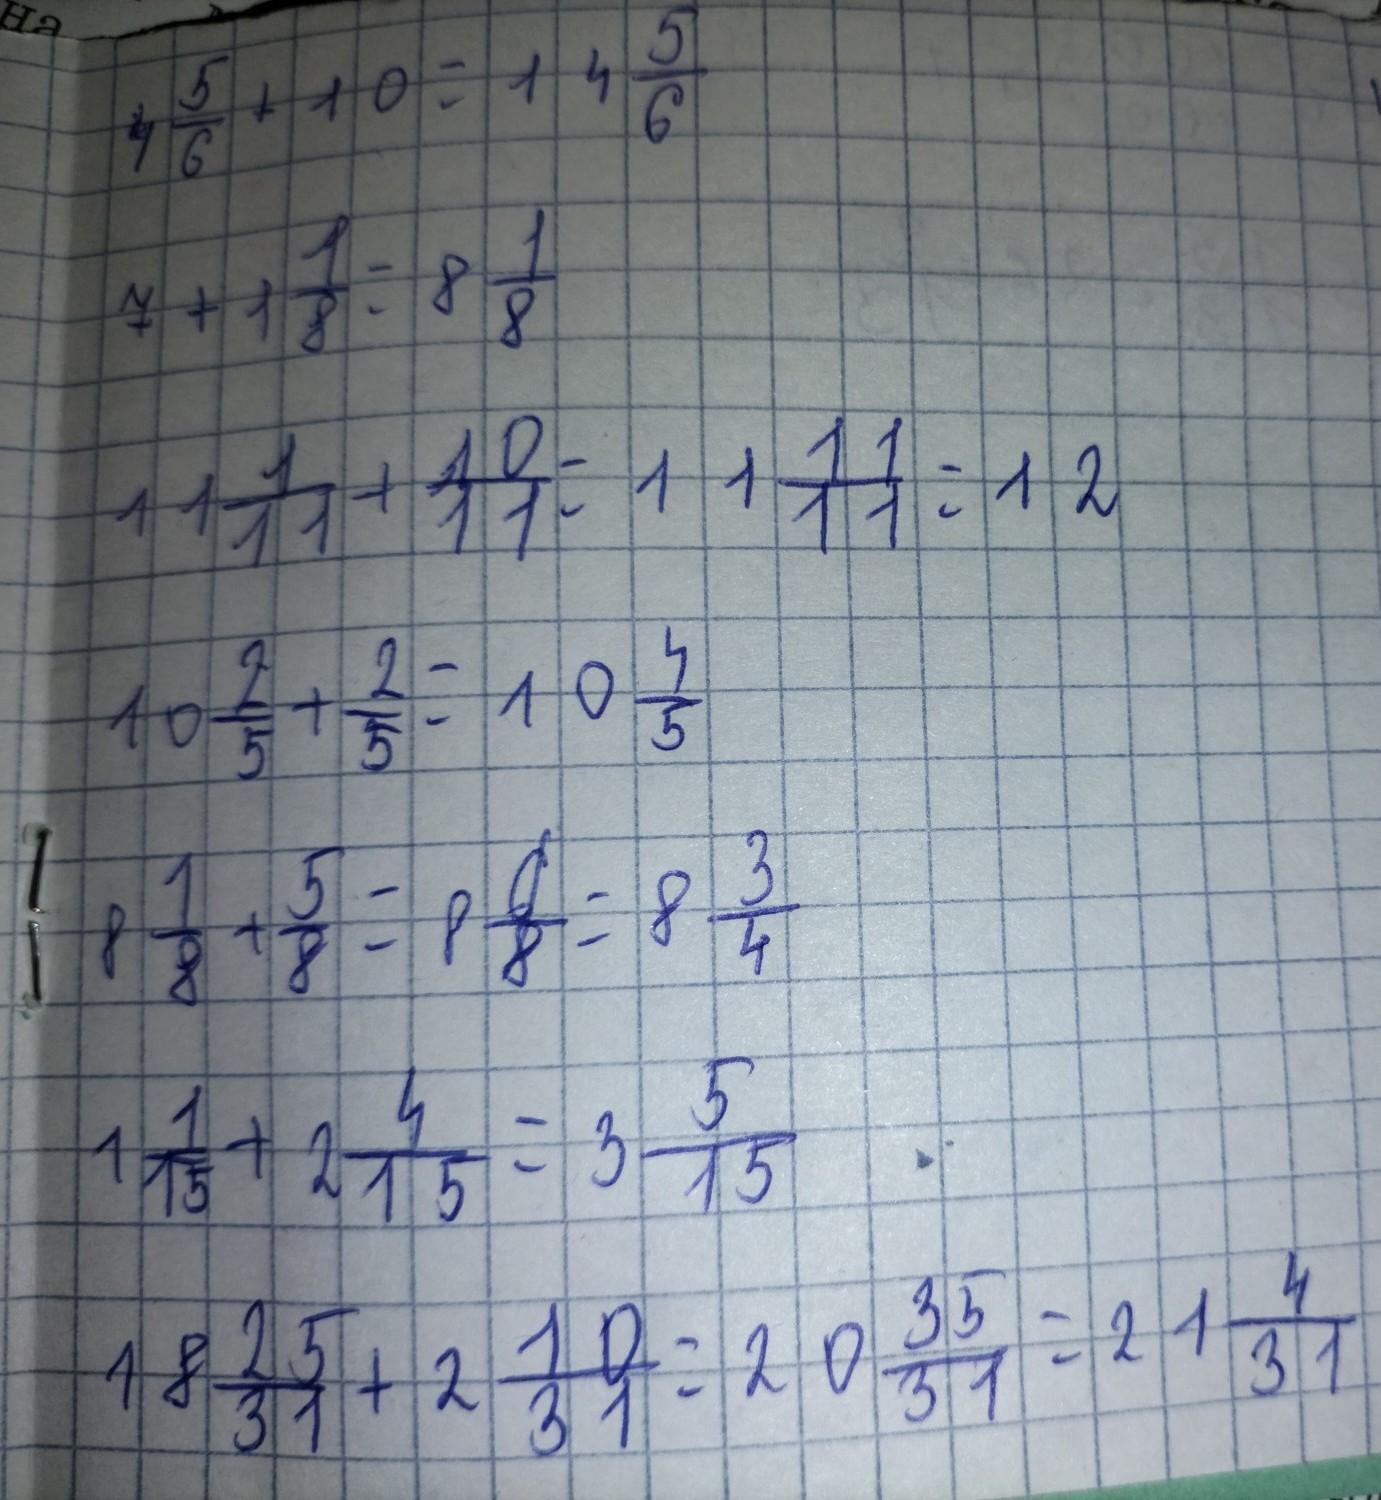 на
4 5/6 + 10 = 14 5/6
7 + 1 1/8 = 8 1/8
11 1/11 + 10/11 = 11 11/11 = 12
10 2/5 + 2/5 = 10 4/5
8 1/8 + 5/8 = 8 6/8 = 8 3/4
1 1/15 + 2 4/15 = 3 5/15
18 25/31 + 2 10/31 = 20 35/31 = 21 4/31